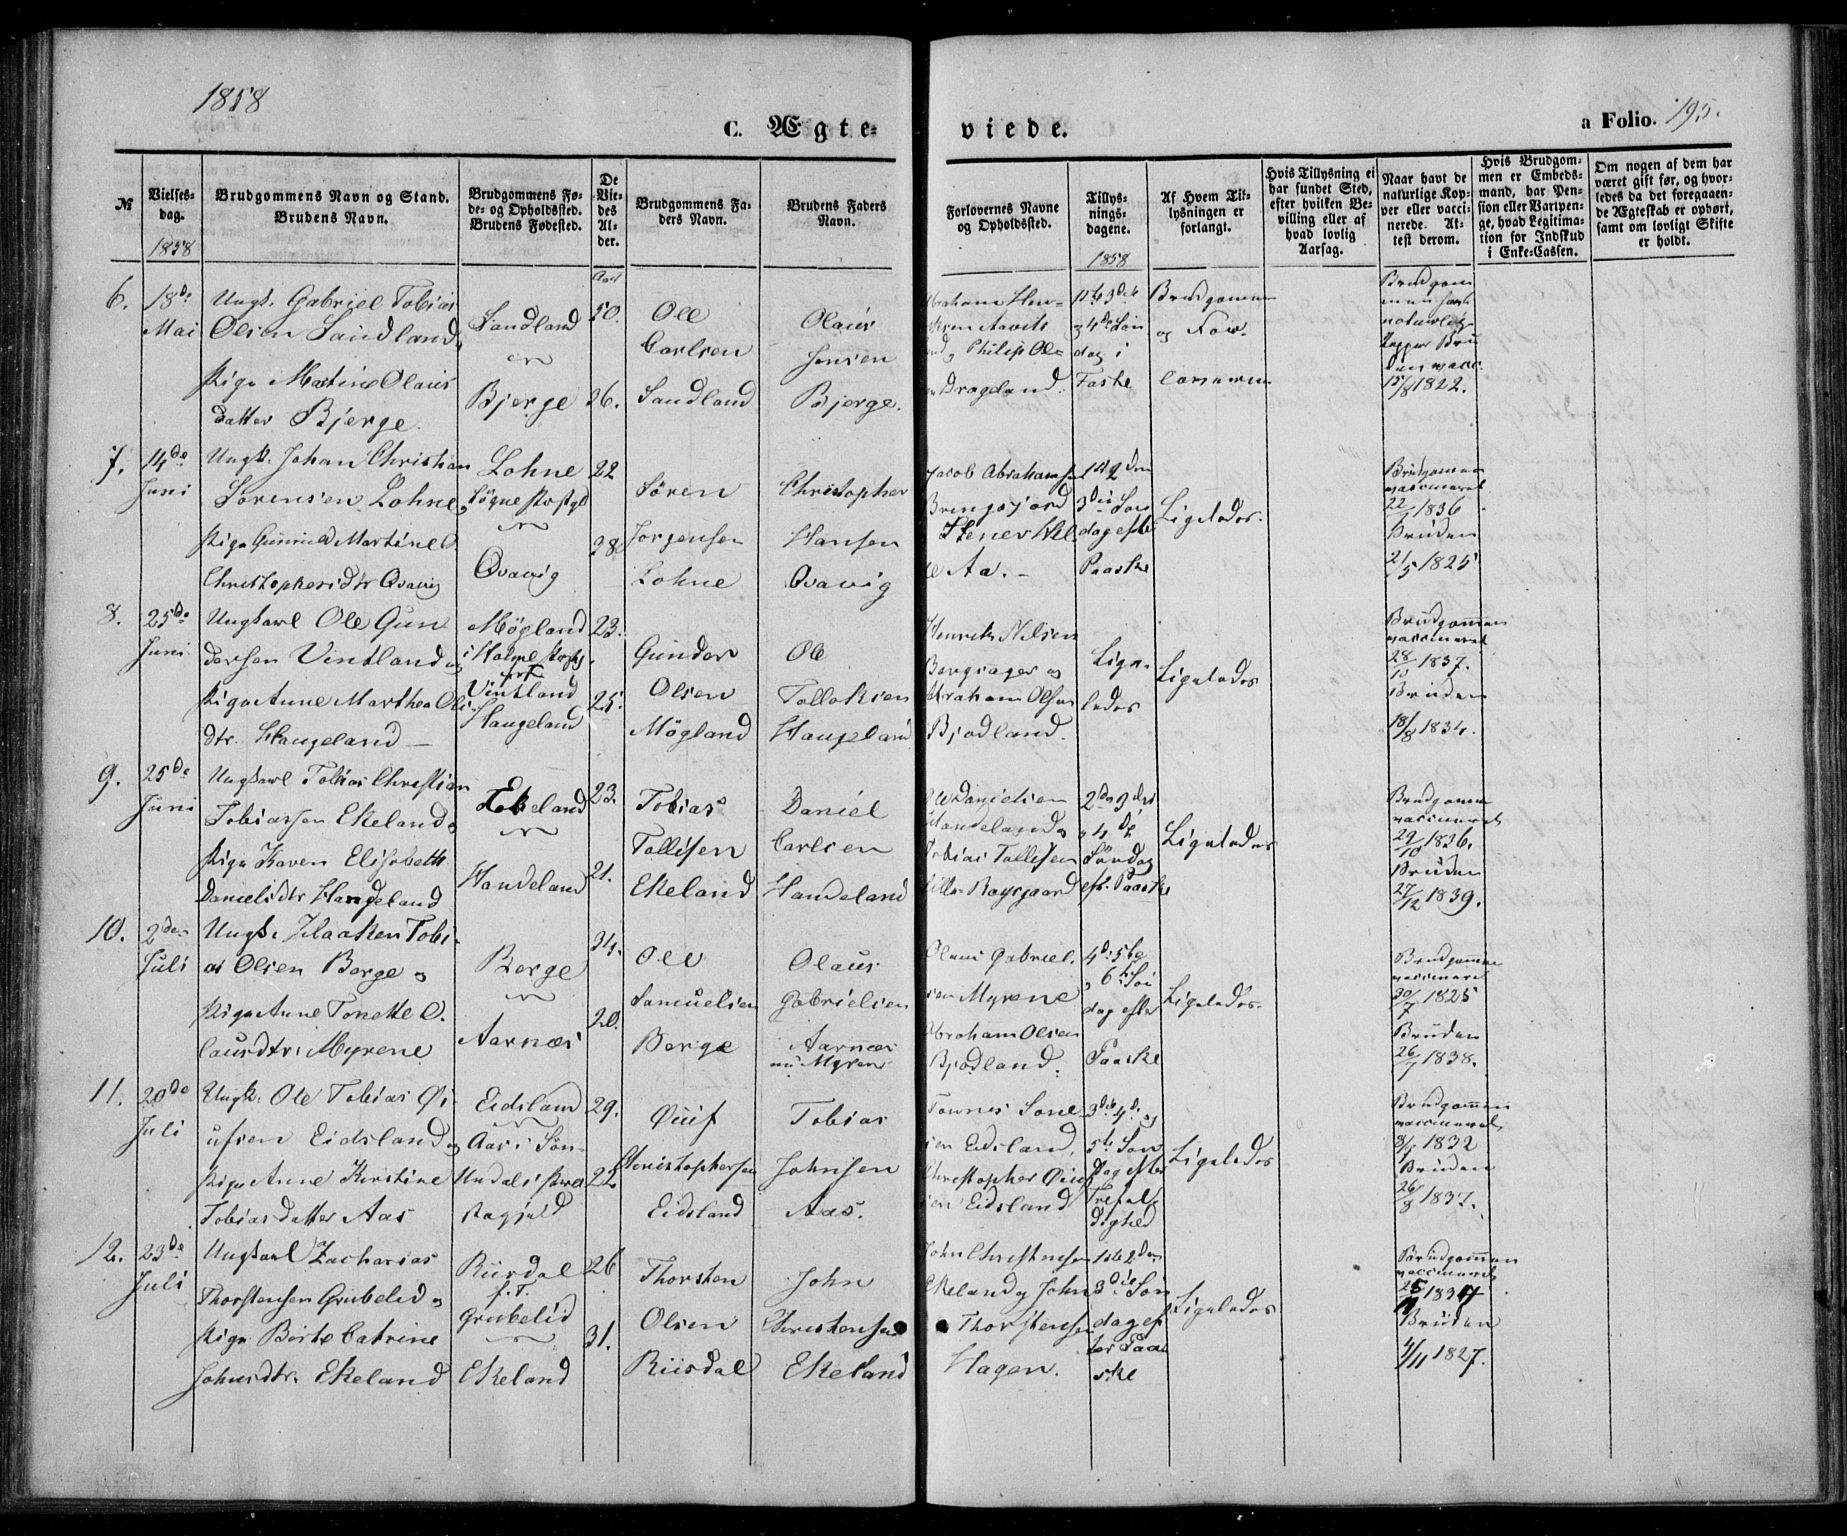 1858
C. Ægte-
viede.
a Folio. 195.
№
Vielses-
dag.
1858
Brudgommens Navn og Stand.
Brudens Navn.
Brudgommens Fø-
de- og Opholdssted.
Brudens Fødested.
De
Vie-
des
Al-
der.
Brudgommens Fa-
ders Navn.
Brudens Faders
Navn.
Forlovernes Navne
og Opholdssted.
Tillys-
nings-
dagene.
1858
Af Hvem Til-
lysningen er
forlangt.
Hvis Tillysning ei
har fundet Sted,
efter hvilken Be-
villing eller af
hvad lovlig
Aarsag.
Naar havt de
naturlige Kop-
per eller vacci-
nerede. At-
test derom.
Hvis Brudgom-
men er Embeds-
mand, har Pen-
sion eller Vartpen-
ge, hvad Legitima-
tion for Indskud
i Enke-Cassen.
Om nogen af dem har
været gift før, og hvor-
ledes da det foregaaen-
de Ægteskab er ophørt,
samt om lovligt Skifte
er holdt.
6.
18de
Mai
Ungk. Gabriel Tobias
Olsen Sandland
Pige Martine Olaus
datter Bjerge.
Sandland
Bjerge
Aar
50.
36.
Ole
Carlsen
Sandland
Olaus
Jensen
Bjerge.
Philip Ol-
Drageland.
1ste 3die
og 4de Søn
dag i
Faste
Brudgommen
og For-
Brudgom
men havt
naturlige
Kopper Bru
den vacc.
15/8 1822.
7.
14de
Juni
Ungk. Johan Christian
Sørensen Lohne
Pige Gunnild Martine
Christophersdtr Qvavig
Lohne
Søgne Prstgd
Qvavig
22
28
Søren
Jørgensen
Lohne
Christopher
Hansen
Qvavig
Jacob Abrahamsen
Brengsjord
Aa. -
1ste 2den
3die Søn
dag efter
Paaske
Ligeledes.
Brudgommen
vaccineret
22/7 1836
Bruden
21/5 1825
8.
25de
Juni
Ungkarl Ole Gun
dersen Vintland og
Pige Anne Marthea Ols
dtr. Haugeland -
Møgland
i Halme Prstgj
Vintland
Haugeland
23.
25.
Gunder
Olsen
Møgland
Ole
Tollaksen
Haugeland
Henrik Nilsen
Bergsager og
Abraham Olsen
Bjodland.
Lige-
ledes
Ligeledes
Brudgommen
vaccineret
28/10 1837.
Bruden
18/8 1834.
9.
25de
Juni
Ungkarl Tobias Christian
Tobiassen Ekeland og
Pige Karen Elisabeth
Danielsdtr Handeland
Ekeland
Handeland
23.
21.
Tobias
Tallisen
Ekeland
Daniel
Carlsen
Handeland
Ole Danielsen
Handeland og
Tobias Tallisen
2den 3die
og 4de
Søndag
eft. Paaske
Ligeledes
Brudgommen
vaccineret
29/10 1836.
Bruden
27/12 1839.
10.
2den
Juli
Ungk. Haaken Tobi-
as Olsen Berge og
Pige Anne Tonette O-
lausdtr. Myrene
Berge
Aarnæs
34.
20.
Ole
Samuelsen
Berge
Olaus
Gabrielsen
Aarnæs
nu Myrene
Olaus Gabriel-
sen Myrene
Abraham Olsen
Bjodland.
4de 5te
og 6te Søn
dag efter
Paaske
Ligeledes.
Brudgommen
vaccineret
30/7 1825
Bruden
26/7 1838.
11.
20de
Juli
Ungk. Ole Tobias Øi-
ufsen Eidsland og
Pige Anne Kirstine
Tobias datter Aas
Eidsland
Aas i Søn-
Undals Præs
tegjeld
29.
22.
Øiuf
Christophersen
Eidsland
Tobias
Johnsen
Aas.
Tønnes Søne-
sen Eidsland,
Christopher Øiuf
sen Eidsland
3die 4de og
5te Søn
dag efter
Trefol-
dighed
Ligeledes
Brudgommen
vaccineret
3/7 1832
Bruden
26/8 1837.
12.
23de
Juli
Ungkarl Zacharias
Thorstensen Grubelid og
Pige Berte Catrine
Johnsdtr. Ekeland
Riisdal
f. T.
Grubelid
Ekeland
26
31.
Thorsten
Olsen
Riisdal
John
Christensen
Ekeland
John Christensen
Ekeland og John
Thorstensen
Hagen.
1ste 2den
3die Søn
dag ef
ter Paa
ske
Ligeledes
Brudgommen
vaccineret
Bruden
4/11 1827.